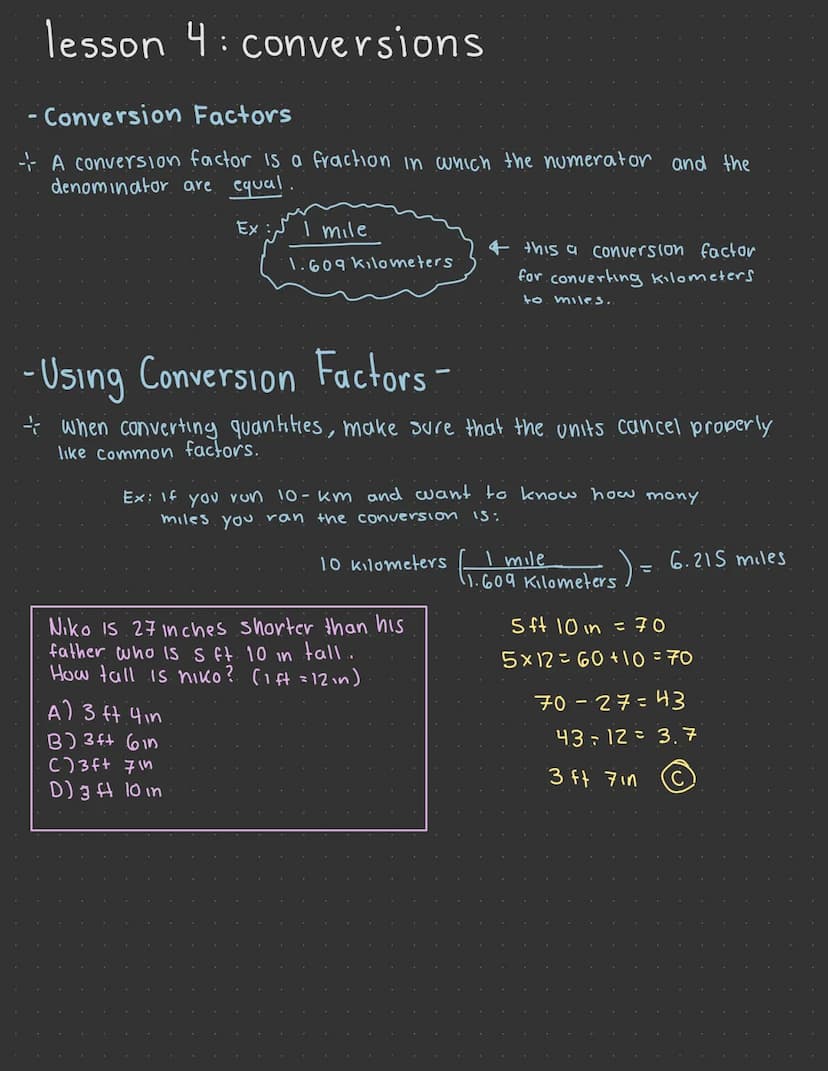 lesson 4: conversions
- Conversion Factors
-¦- A conversion factor is a fraction in which the numerator and the
denominator are equal.
Ex: 1 mile
1.609 kilometers
← this a conversion factor
for converting kilometers
to miles.
- Using Conversion Factors -
-¦- When converting quantities, make sure that the units cancel properly
like common factors.
Ex: If you run 10-km and want to know how many
miles you ran the conversion is:
10 kilometers ( 1 mile / 1.609 Kilometers ) = 6.215 miles
Niko is 27 inches shorter than his
father who is 5 ft 10 in tall.
How tall is niko? (1 ft = 12 in)
A) 3 ft 4in
B) 3ft 6in
C) 3ft 7in
D) 3 ft 10 in
5 ft 10 in = 70
5 x 12 = 60 + 10 = 70
70 - 27 = 43
43 ÷ 12 = 3.7
3 ft 7in C